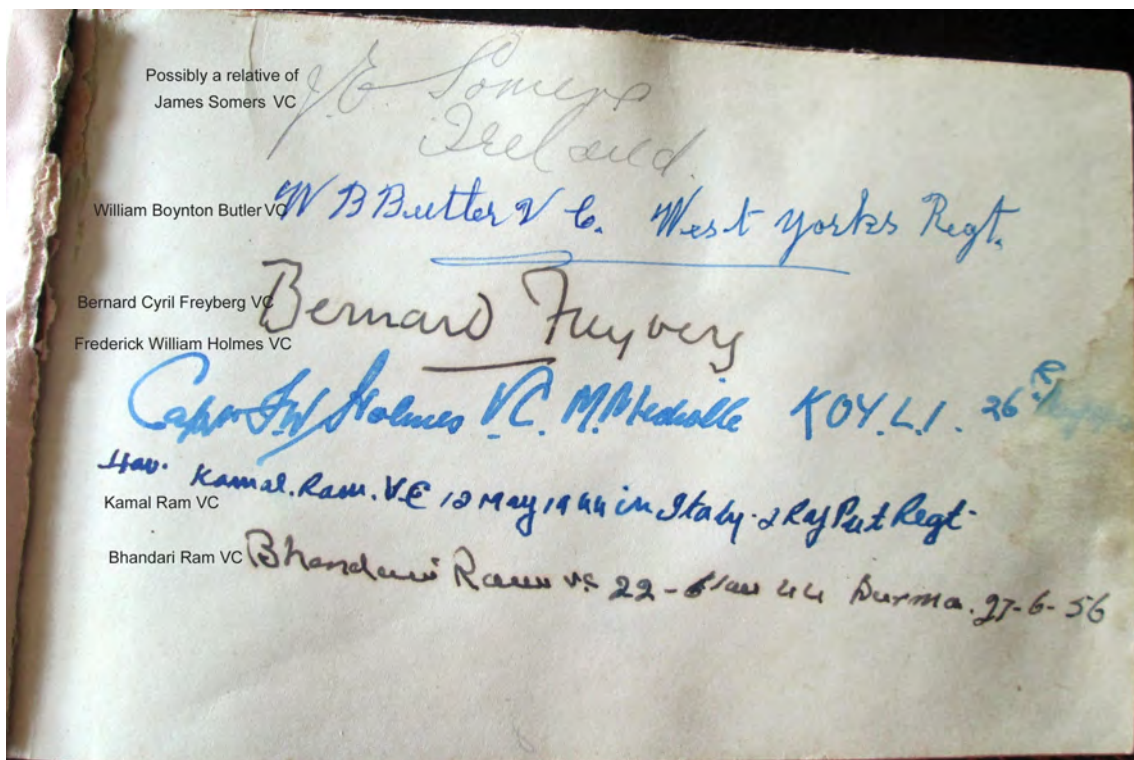 Possibly a relative of
James Somers VC
J.E Somers
Ireland.
William Boynton Butler VC
W B Butler V C. West Yorks Regt.
Bernard Cyril Freyberg VC
Bernard Freyberg
Frederick William Holmes VC
Capt F W Holmes V.C. M. Medaille KOY.L.I. 26th
Hav. Kamal. Ram. V.C 12 May 1944 in Italy. 2 RajPut Regt.
Kamal Ram VC
Bhandari Ram VC
Bhandari Ram VC 22-Nov 44 Burma. 27-6-56